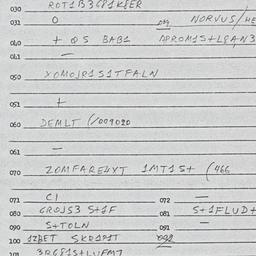 030 ROT1B3681K8ER
031 0 039 NORVUS/HE
040 + Q5 BAB1 APROM1S+L8AN3
041 —
050 XOMOJR1S1TFALN
051 +
060 DEMLT (/009020
061 —
070 ZOMFARE4XT 1MT1S+ (466
071 C1 072 —
080 GROJS3 S+1F 081 S+1FLUD+
090 S+TOLN 091 —
100 1ZBET SKD1P1T 092
101 3R681S+LVFMT